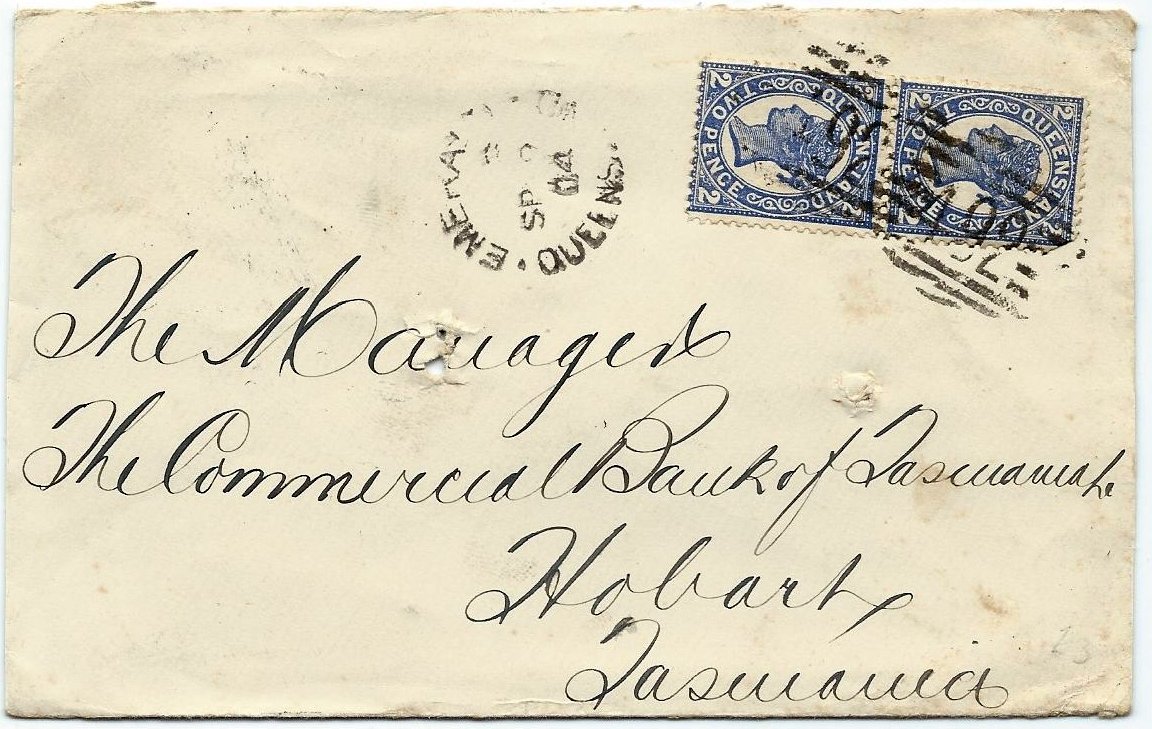 QUEENSLAND
2 2
TWO PENCE
2
QUEENSLAND
2 2
TWO PENCE
2
SP
04
QUEENS
The Manager
The Commercial Bank of Tasmania Ld
Hobart
Tasmania